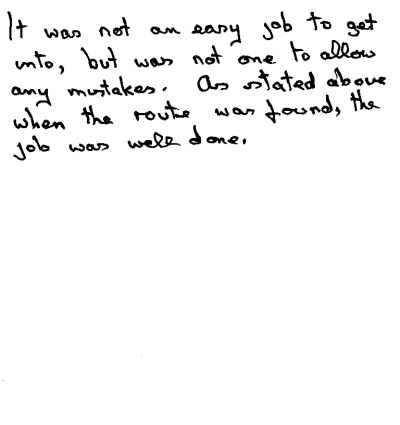 It was not an easy job to get
into, but was not one to allow
any mistakes. As stated above
when the route was found, the
job was well done.